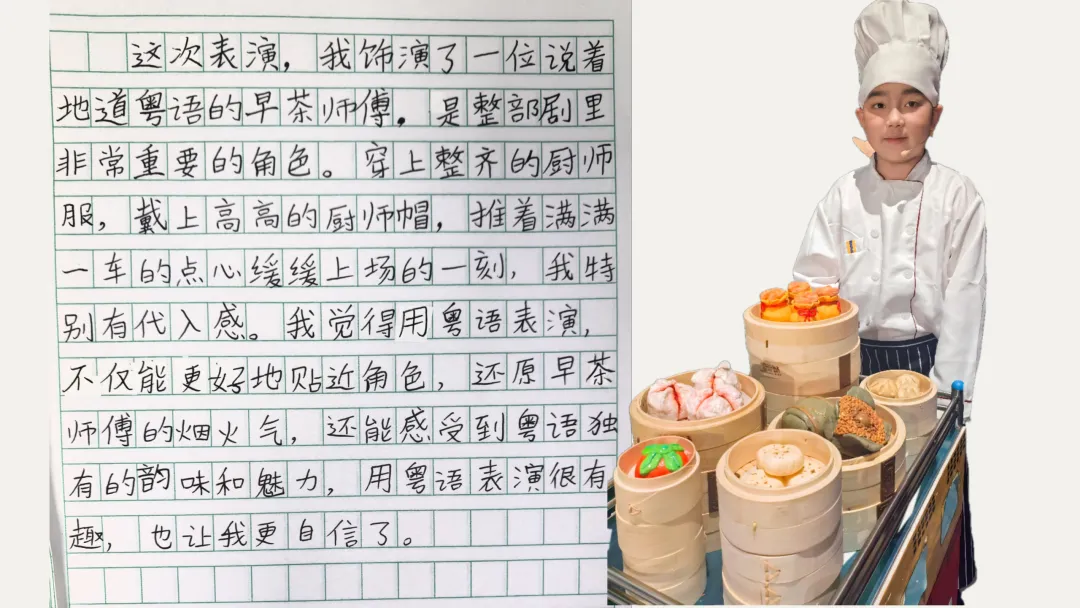 这次表演，我饰演了一位说着
地道粤语的早茶师傅。是整部剧里
非常重要的角色。穿上整齐的厨师
服，戴上高高的厨师帽，推着满满
一车的点心缓缓上场的一刻，我特
别有代入感。我觉得用粤语表演，
不仅能更好地贴近角色，还原早茶
师傅的烟火气，还能感受到粤语独
有的韵味和魅力，用粤语表演很有
趣，也让我更自信了。